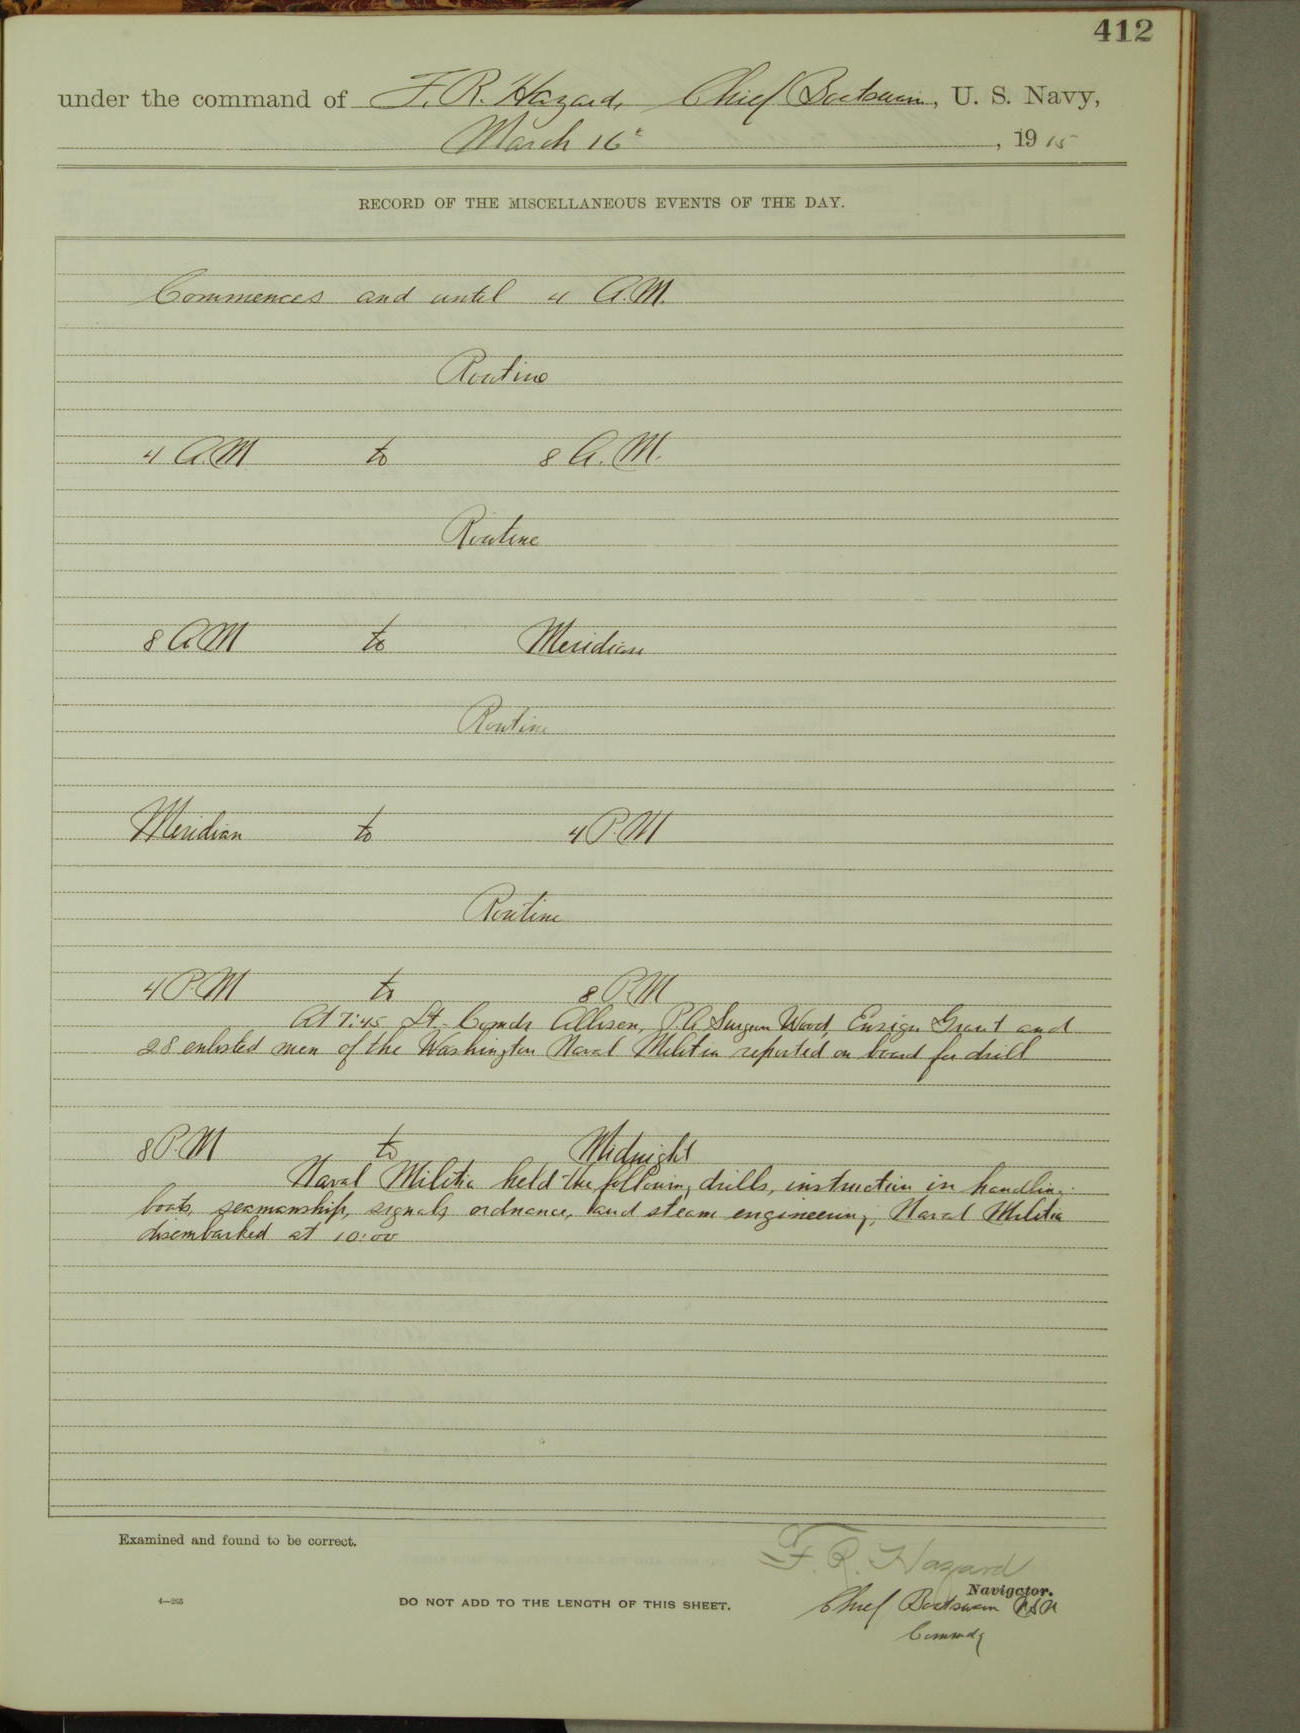 412
under the command of F. R. Hazard, Chief Boatswain, U. S. Navy,
March 16th, 1915
RECORD OF THE MISCELLANEOUS EVENTS OF THE DAY.
Commences and until 4 A.M.
Routine
4 A.M to 8 A.M.
Routine
8 A.M to Meridian
Routine
Meridian to 4 P.M
Routine
4 P.M to 8 P.M
At 7:45 Lt. Comdr Allison, P.A Surgeon Wood, Ensign Grant and
28 enlisted men of the Washington Naval Militia reported on board for drill
8 P.M to Midnight
Naval Militia held the following drills, instruction in handling
boats, seamanship, signals, ordnance, and steam engineering, Naval Militia
disembarked at 10:00
Examined and found to be correct.
F. R. Hazard
Navigator.
4—265
DO NOT ADD TO THE LENGTH OF THIS SHEET.
Chief Boatswain USN
Commdg